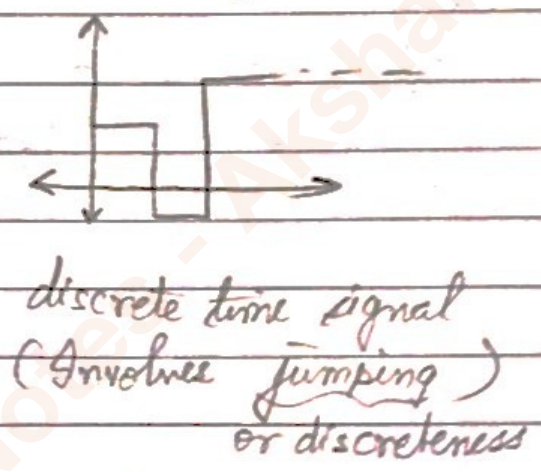 discrete time signal
(Involves jumping)
or discreteness